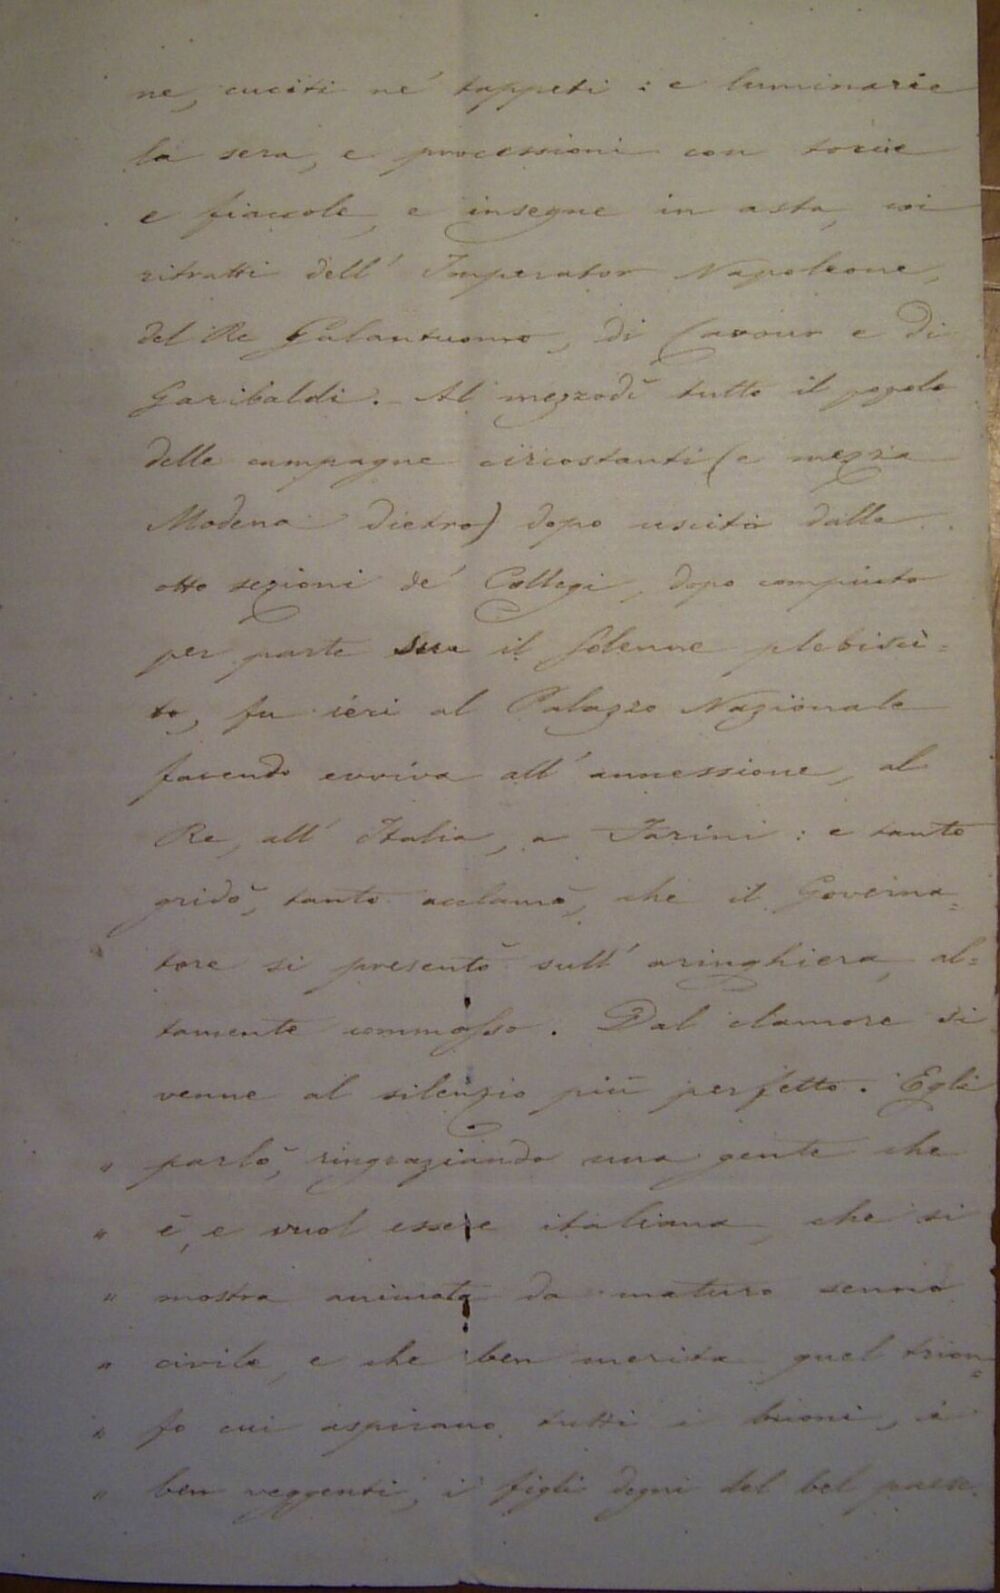 ne, cuciti né tappeti: e luminarie
la sera, e processioni con torcie
e fiaccole, e insegne in asta, coi
ritratti dell' Imperator Napoleone,
del Re Galantuomo, di Cavour e di
Garibaldi. Al mezzodì tutto il popolo
delle campagne circostanti (e mezza
Modena dietro) dopo uscito dalle
otto sezioni de' Collegi, dopo compiuto
per parte sua il solenne plebisci=
to, fu ieri al Palazzo Nazionale
facendo evviva all' annessione, al
Re, all' Italia, a Farini: e tanto
gridò, tanto acclamò, che il Governa=
tore si presentò sull' aringhiera, al=
tamente commosso. Dal clamore si
venne al silenzio più perfetto. Egli
" parlò, ringraziando una gente che
" è, e vuol essere italiana, che si
" mostra animata da maturo senno
" civile, e che ben merita quel trion=
" fo cui aspirano tutti i buoni, i
" ben veggenti, i figli degni del bel paese.